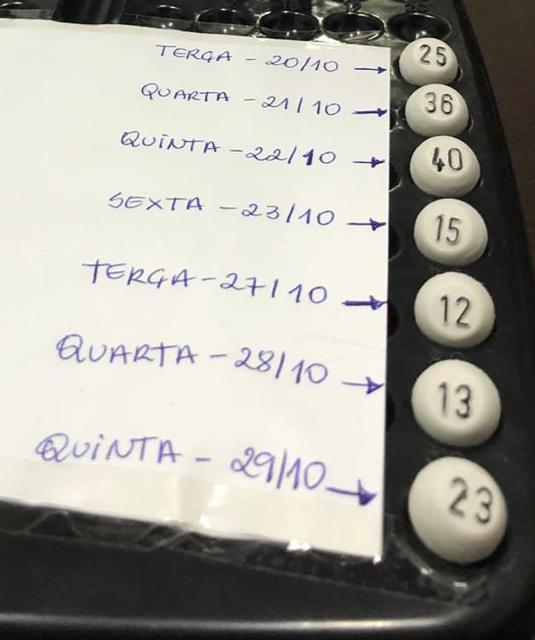 TERÇA - 20/10 → 25
QUARTA - 21/10 → 36
QUINTA - 22/10 → 40
SEXTA - 23/10 → 15
TERÇA - 27/10 → 12
QUARTA - 28/10 → 13
QUINTA - 29/10 → 23